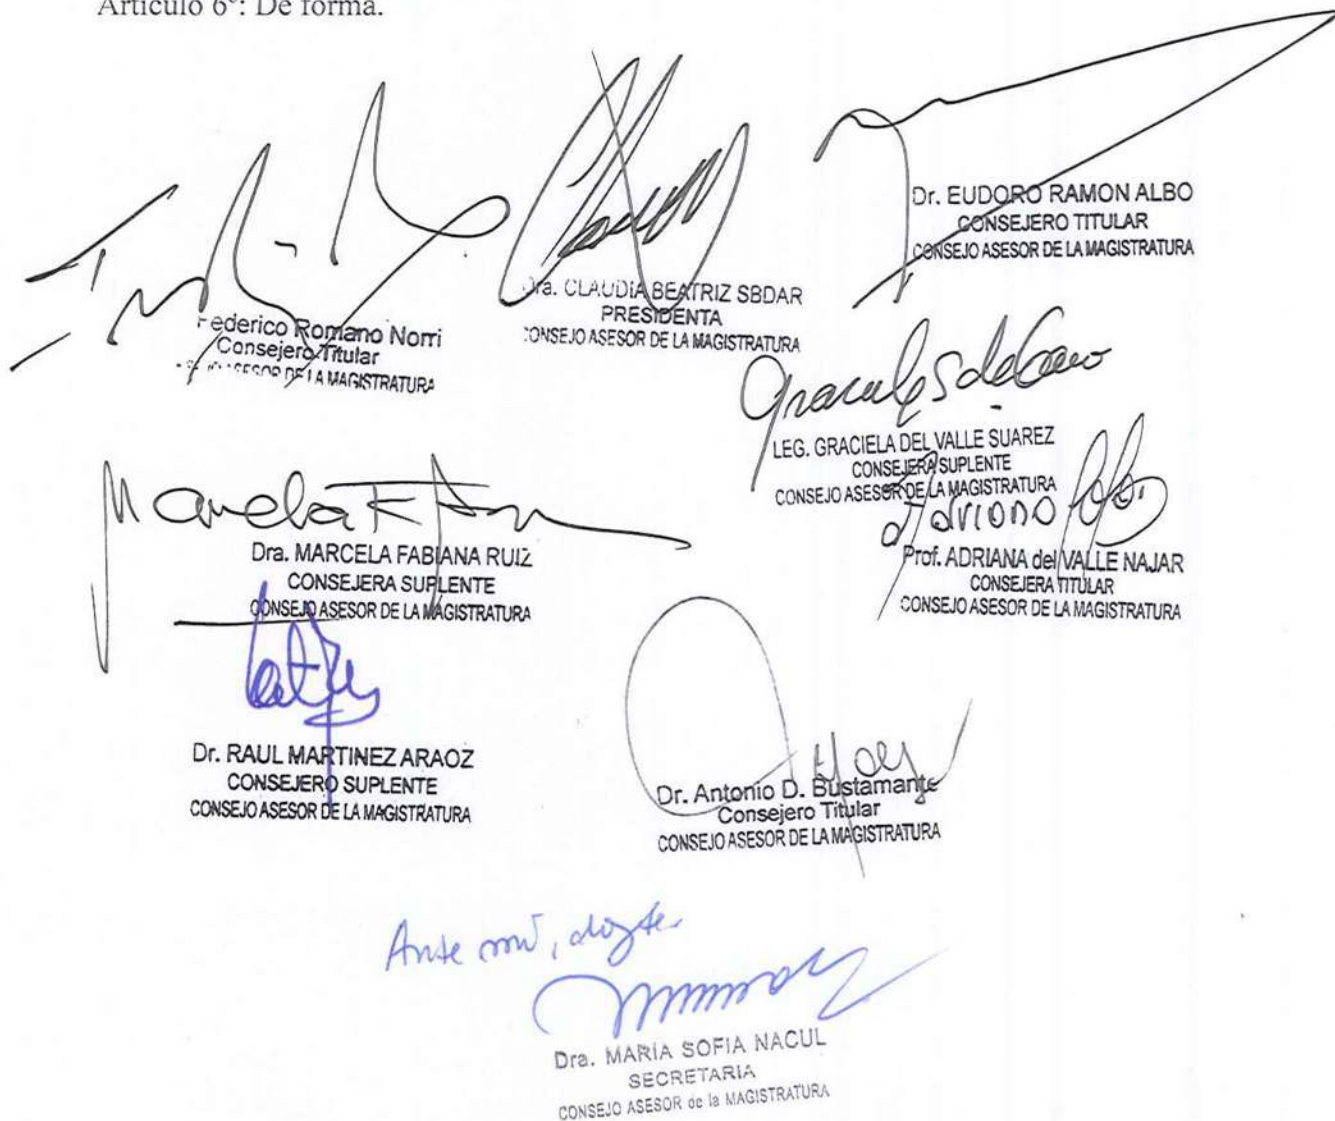 Artículo 6º: De forma.
Federico Romano Norri
Consejero Titular
ASESOR DE LA MAGISTRATURA
Dra. CLAUDIA BEATRIZ SBDAR
PRESIDENTA
CONSEJO ASESOR DE LA MAGISTRATURA
Dr. EUDORO RAMON ALBO
CONSEJERO TITULAR
CONSEJO ASESOR DE LA MAGISTRATURA
LEG. GRACIELA DEL VALLE SUAREZ
CONSEJERA SUPLENTE
CONSEJO ASESOR DE LA MAGISTRATURA
Marcela F
Dra. MARCELA FABIANA RUIZ
CONSEJERA SUPLENTE
CONSEJO ASESOR DE LA MAGISTRATURA
Prof. ADRIANA del VALLE NAJAR
CONSEJERA TITULAR
CONSEJO ASESOR DE LA MAGISTRATURA
Dr. RAUL MARTINEZ ARAOZ
CONSEJERO SUPLENTE
CONSEJO ASESOR DE LA MAGISTRATURA
Dr. Antonio D. Bustamante
Consejero Titular
CONSEJO ASESOR DE LA MAGISTRATURA
Ante mí, doy fe.
Dra. MARIA SOFIA NACUL
SECRETARIA
CONSEJO ASESOR de la MAGISTRATURA